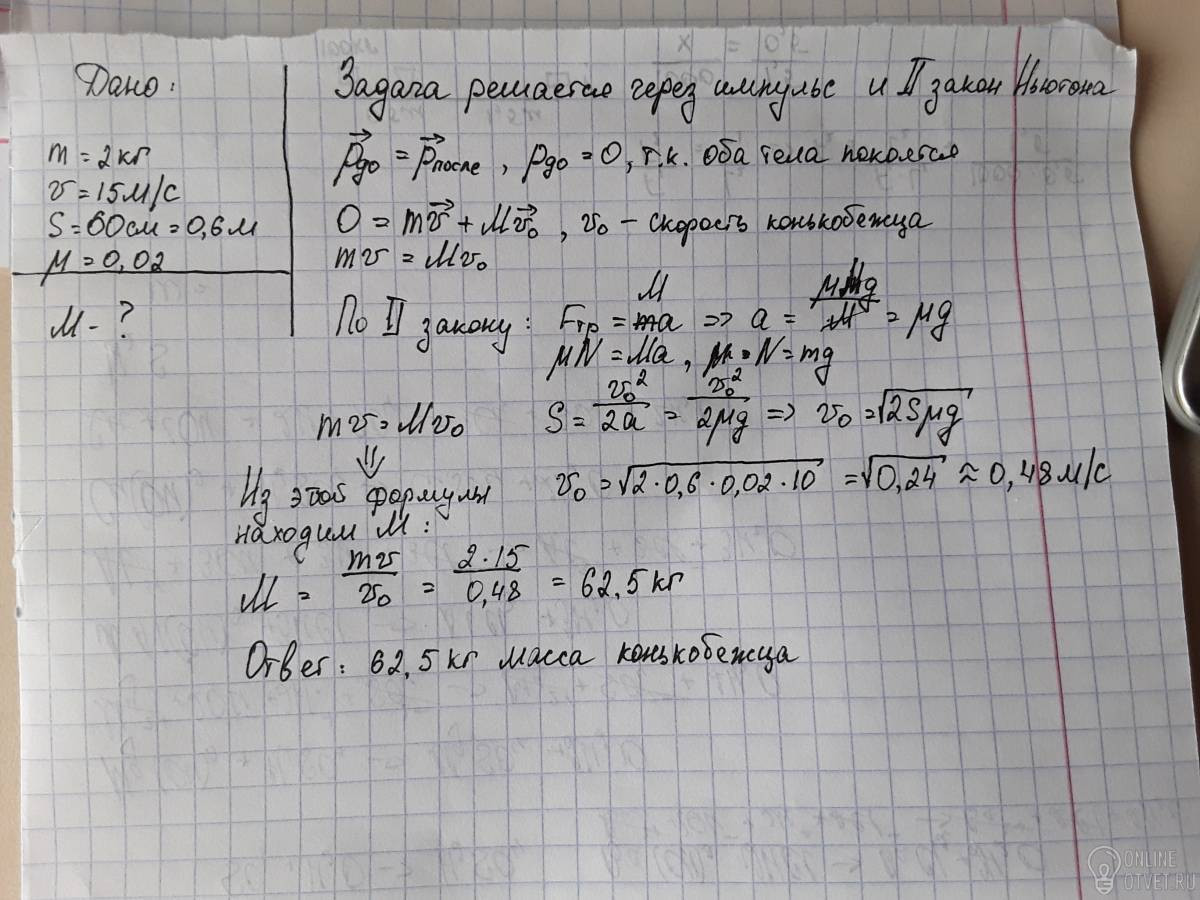 Дано:
m = 2 кг
v = 15 м/с
S = 60 см = 0,6 м
μ = 0,02
M - ?
Задача решается через импульс и II закон Ньютона
p⃗до = p⃗после, pдо = 0, т.к. оба тела покоятся
0 = mv⃗ + Mv⃗₀, v₀ - скорость конькобежца
mv = Mv₀
По II закону: Fтр = Ma => a = μMg/M = μg
μN = Ma, N = mg
S = v₀²/2a = v₀²/2μg => v₀ = √2Sμg
v₀ = √2·0,6·0,02·10 = √0,24 ≈ 0,48 м/с
mv = Mv₀
⇓
Из этой формулы
находим M:
M = mv/v₀ = 2·15/0,48 = 62,5 кг
Ответ: 62,5 кг масса конькобежца
ONLINE
OTVET.RU